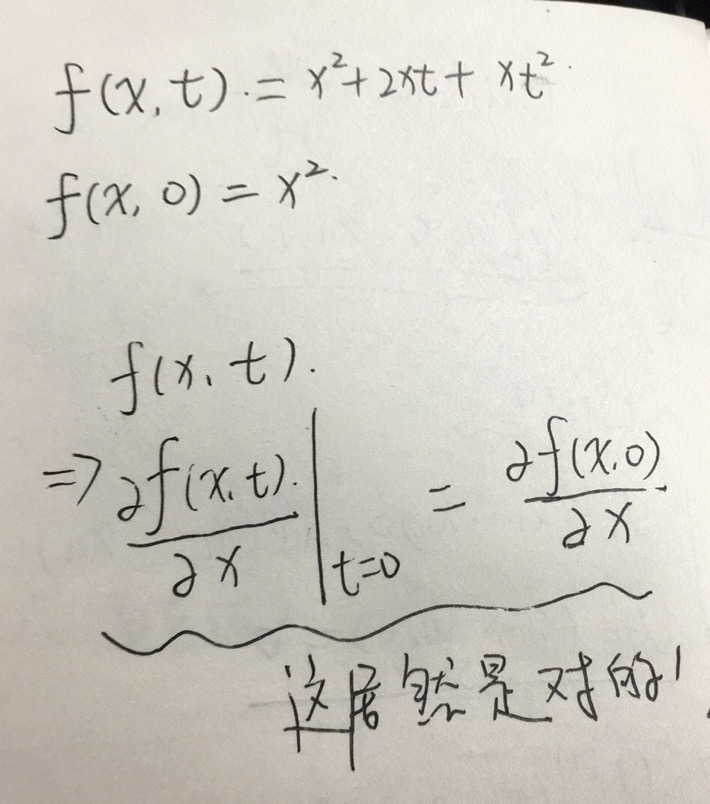 f(x,t).=x²+2xt+xt².
f(x,0)=x².
f(x,t).
⇒ ∂f(x,t)./∂x |t=0 = ∂f(x,0)/∂x.
这居然是对的!